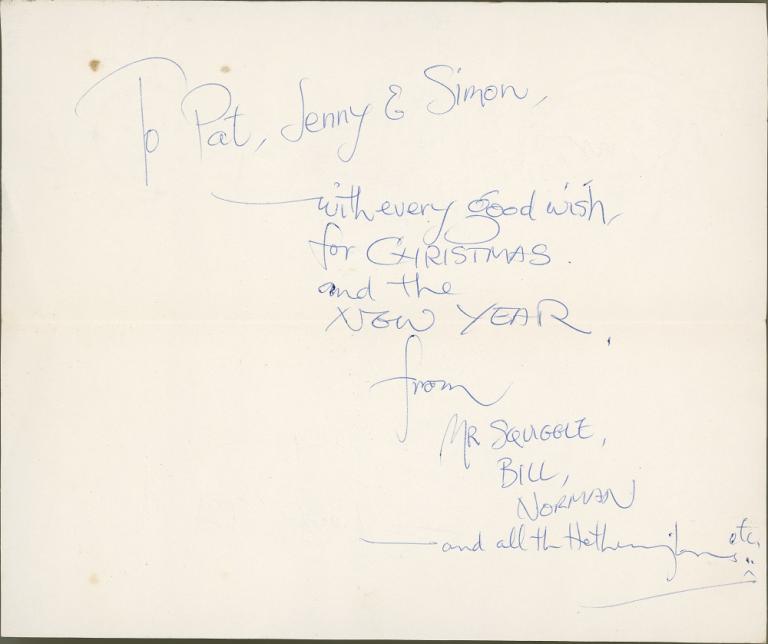 To Pat, Jenny & Simon,
— with every good wish,
for CHRISTMAS.
and the
NEW YEAR.
from
MR SQUIGGLE,
BILL,
NORMAN
— and all th Hetheringtons etc.